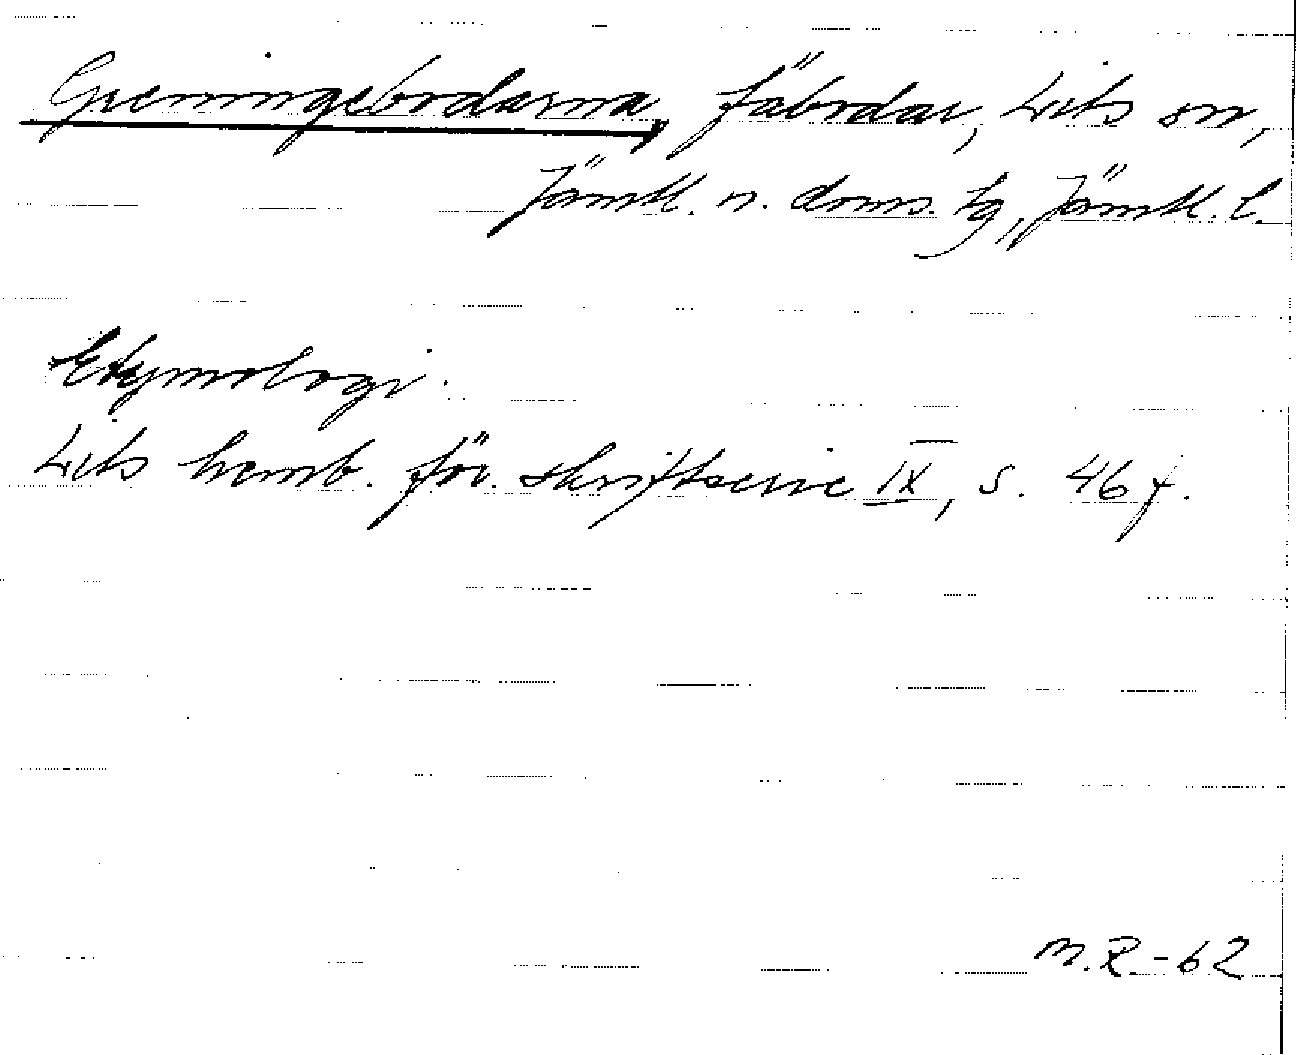 Greningebodarna, fäbodar, Lits sn,
Jämtl. n. doms. tg, Jämtl. l.
Etymologi.
Lits hemb. för. skriftserie IX, s. 46 f.
M.R.-62